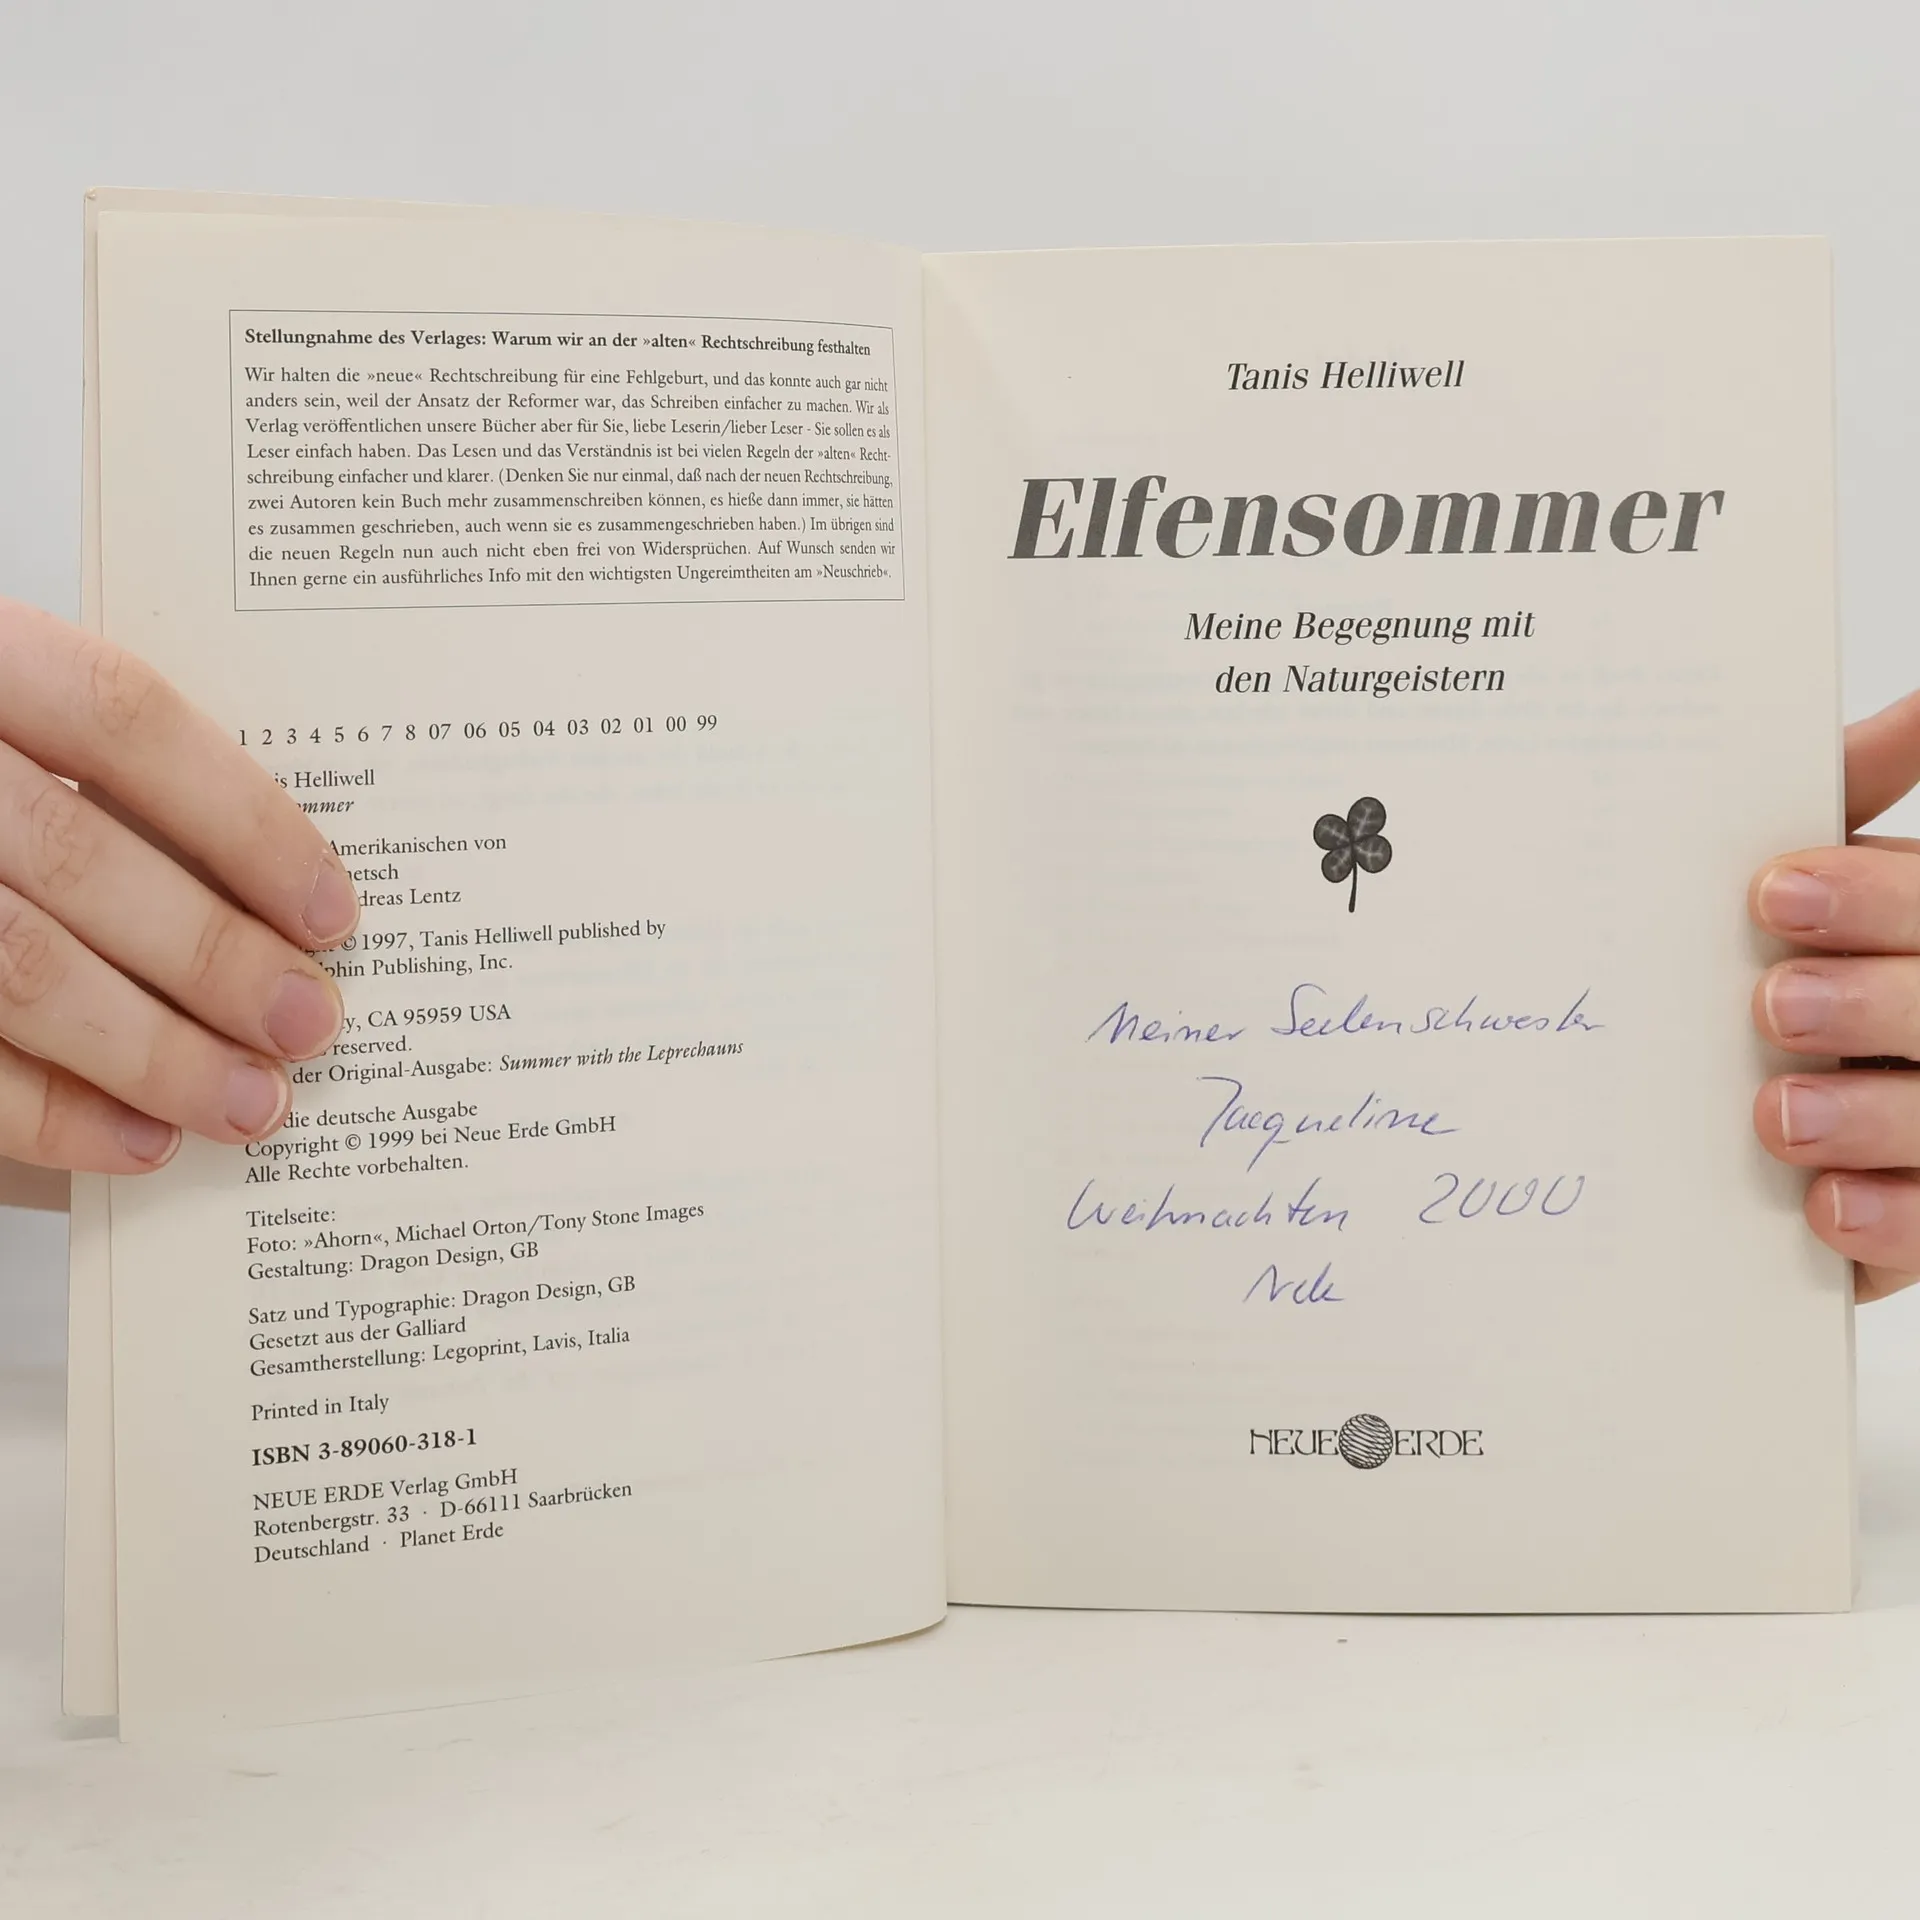 Stellungnahme des Verlages: Warum wir an der »alten« Rechtschreibung festhalten
Wir halten die »neue« Rechtschreibung für eine Fehlgeburt, und das konnte auch gar nicht
anders sein, weil der Ansatz der Reformer war, das Schreiben einfacher zu machen. Wir als
Verlag veröffentlichen unsere Bücher aber für Sie, liebe Leserin/lieber Leser - Sie sollen es als
Leser einfach haben. Das Lesen und das Verständnis ist bei vielen Regeln der »alten« Recht-
schreibung einfacher und klarer. (Denken Sie nur einmal, daß nach der neuen Rechtschreibung,
zwei Autoren kein Buch mehr zusammenschreiben können, es hieße dann immer, sie hätten
es zusammen geschrieben, auch wenn sie es zusammengeschrieben haben.) Im übrigen sind
die neuen Regeln nun auch nicht eben frei von Widersprüchen. Auf Wunsch senden wir
Ihnen gerne ein ausführliches Info mit den wichtigsten Ungereimtheiten am »Neuschrieb«.
1 2 3 4 5 6 7 8 07 06 05 04 03 02 01 00 99
is Helliwell
ommer
Amerikanischen von
netsch
dreas Lentz
© 1997, Tanis Helliwell published by
phin Publishing, Inc.
y, CA 95959 USA
reserved.
der Original-Ausgabe: Summer with the Leprechauns
die deutsche Ausgabe
Copyright © 1999 bei Neue Erde GmbH
Alle Rechte vorbehalten.
Titelseite:
Foto: »Ahorn«, Michael Orton/Tony Stone Images
Gestaltung: Dragon Design, GB
Satz und Typographie: Dragon Design, GB
Gesetzt aus der Galliard
Gesamtherstellung: Legoprint, Lavis, Italia
Printed in Italy
ISBN 3-89060-318-1
NEUE ERDE Verlag GmbH
Rotenbergstr. 33 · D-66111 Saarbrücken
Deutschland · Planet Erde
Tanis Helliwell
Elfensommer
Meine Begegnung mit
den Naturgeistern
Meiner Seelenschwester
Jacqueline
Weihnachten 2000
NEUE ERDE